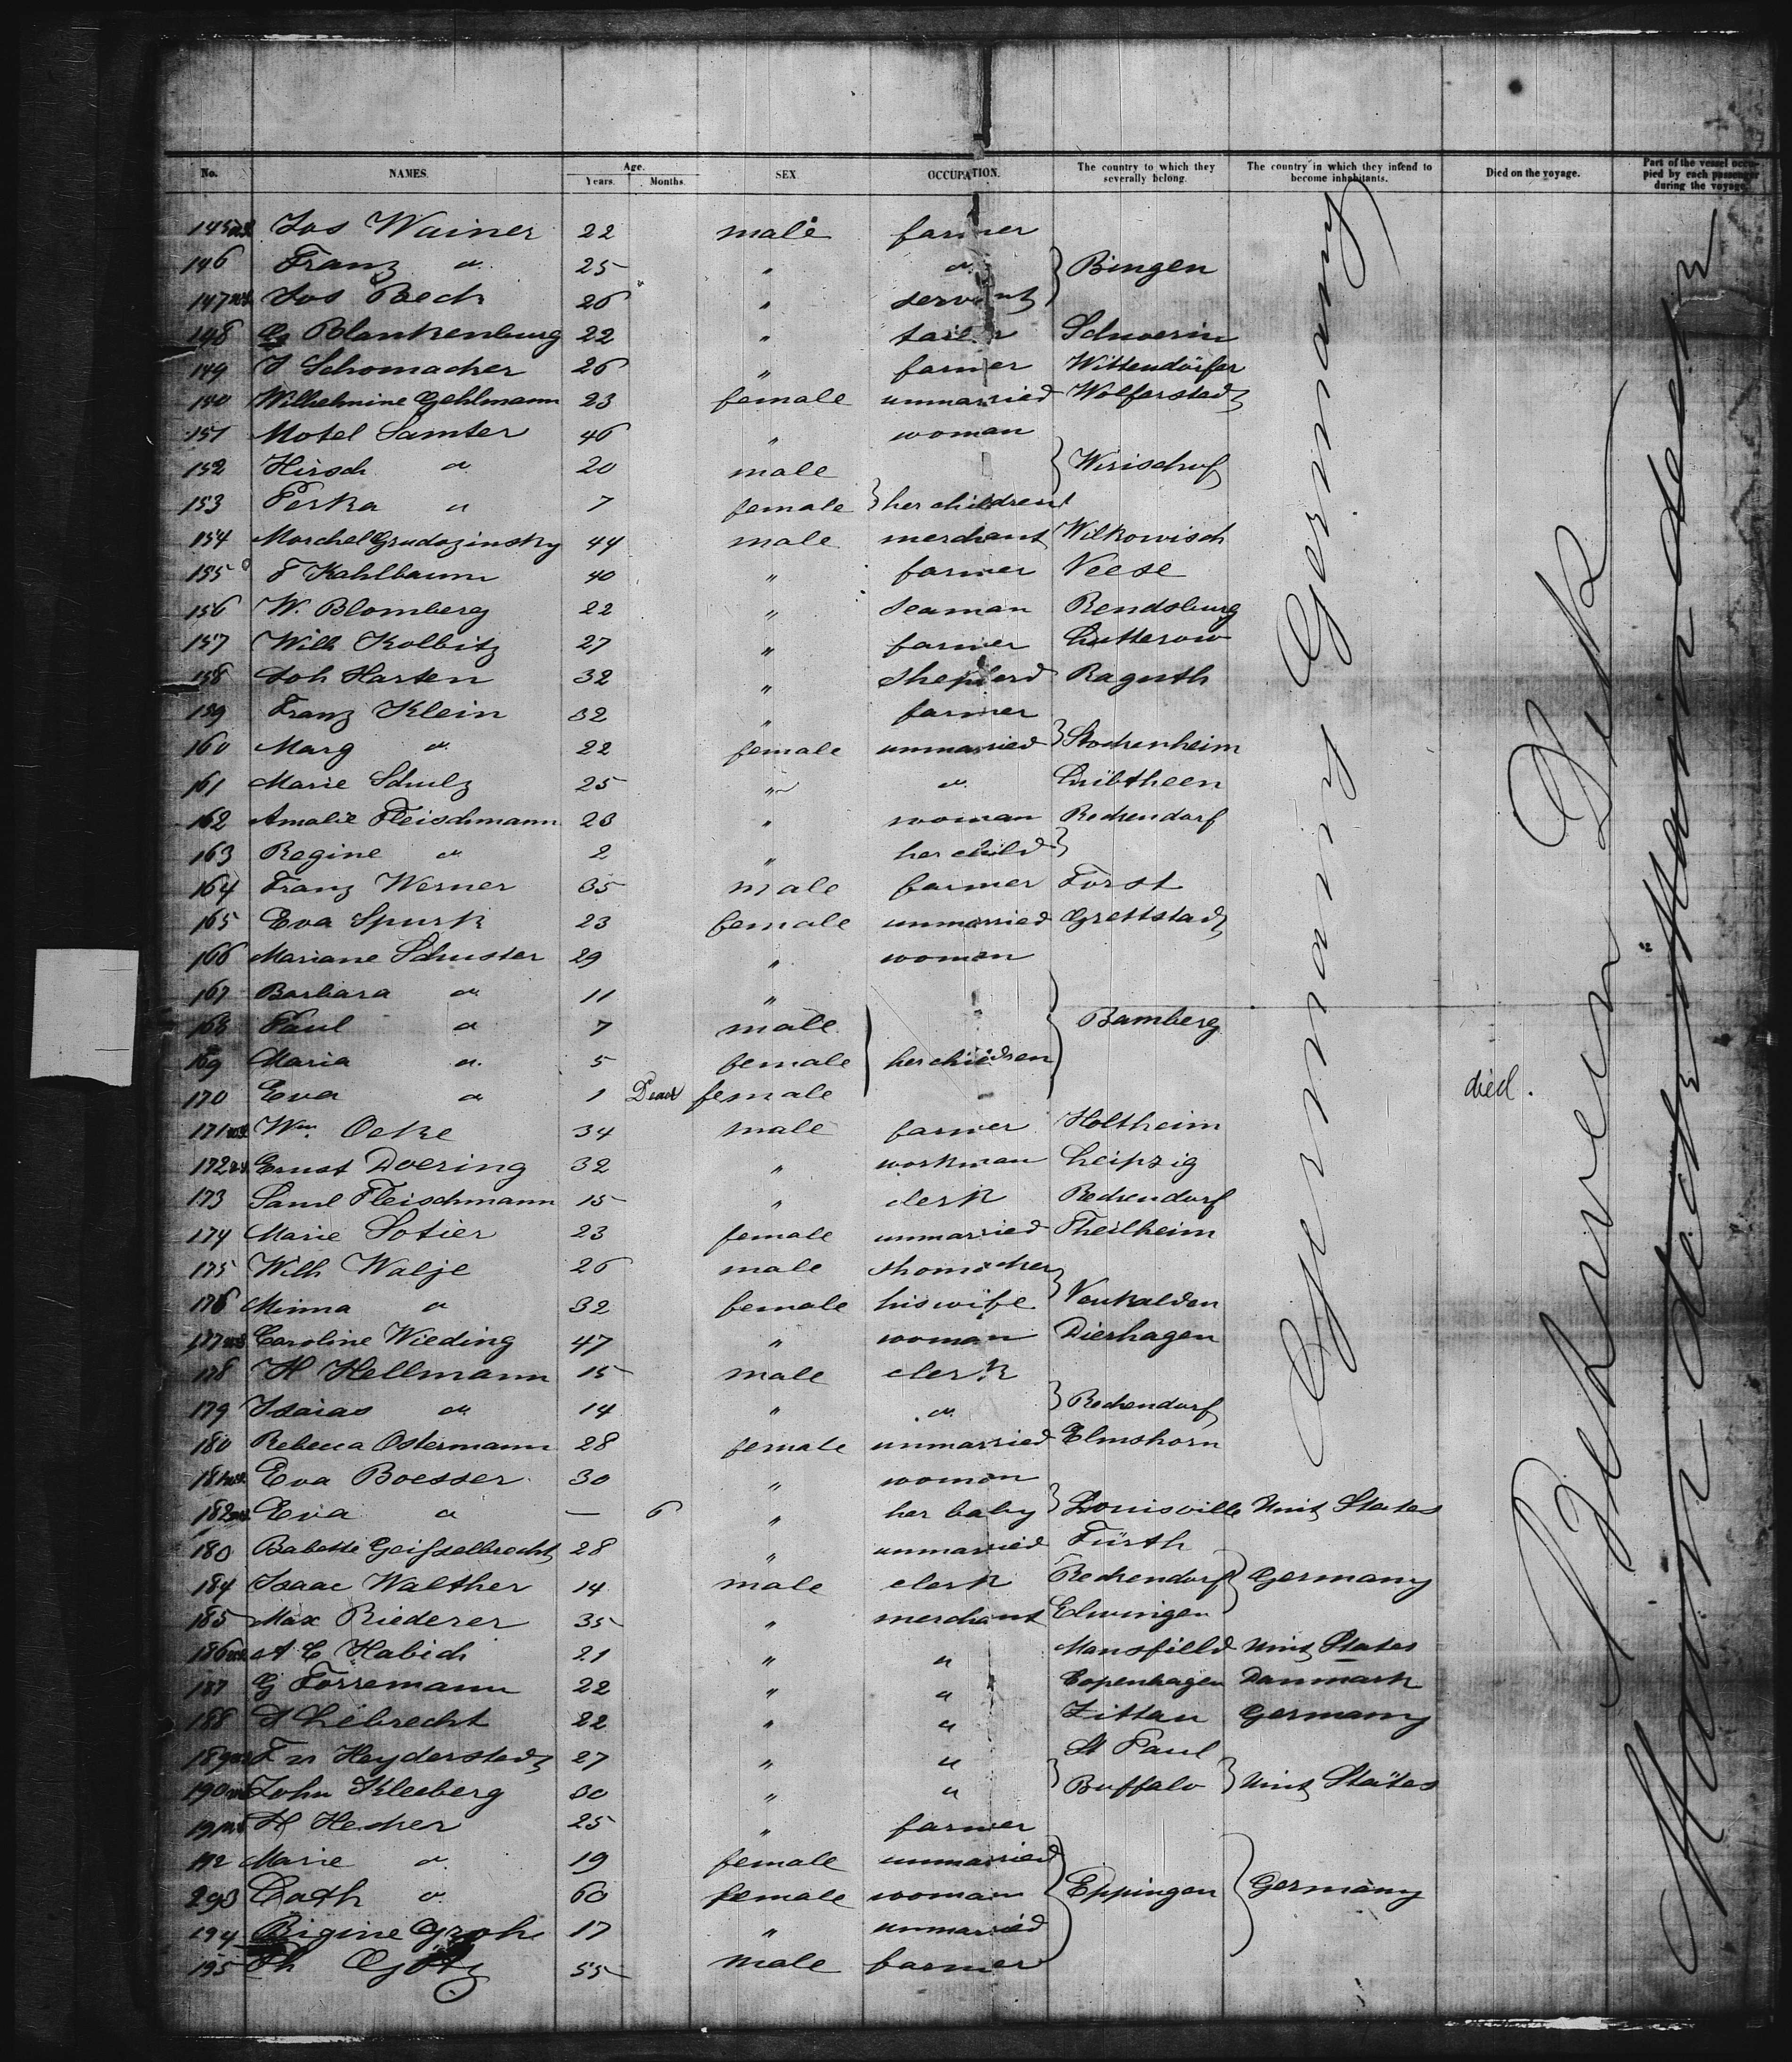 No. NAMES. Age. Years. Months. SEX OCCUPATION. The country to which they severally belong. The country in which they intend to become inhabitants. Died on the voyage. Part of the vessel occupied by each passenger during the voyage.
145 Jos Wainer 22 male farmer
146 Franz " 25 " " } Bingen
147 Jos Bech 26 " servant
148 Blankenburg 22 " tailor Schwerin
149 J Schomacher 26 " farmer Wittendörfer
150 Wilhelmine Gehlmann 23 female unmarried Wolferstadt
151 Motel Samter 46 " woman
152 Hirsch " 20 male } Wirischuf
153 Perka " 7 female } her children
154 Morchel Grudozinsky 44 male merchant Wilkowisch
155 F Kahlbaum 40 " farmer Neese
156 W. Blomberg 22 " seaman Rendsburg
157 Wilh Kolbitz 27 " farmer Lutterow
158 Joh Harten 32 " shepherd Raguth
159 Franz Klein 32 " farmer
160 Marg " 22 female unmarried } Stockenheim
161 Marie Schulz 25 " " Lübtheen
162 Amalie Fleischmann 23 " woman Reckendorf
163 Regine " 2 " her child }
164 Franz Werner 35 male farmer Forst
165 Eva Spurk 23 female unmarried Grettstadt
166 Mariane Schuster 29 " woman
167 Barbara " 11 "
168 Paul " 7 male } Bamberg
169 Maria " 5 female her children
170 Eva " 1 Dead female died.
171 Wm. Oeke 34 male farmer Holtheim
172 Ernst Doering 32 " workman Leipzig
173 Saml Fleischmann 15 " clerk Reckendorf
174 Marie Sotier 23 female unmarried Theilheim
175 Wilh Walje 26 male shomacher
176 Minna " 32 female his wife } Neukalden
177 Caroline Wieding 47 " woman Dierhagen
178 H Hellmann 15 male clerk
179 Isaias " 14 " " } Reckendorf
180 Rebecca Ostermann 28 female unmarried Elmshorn
181 Eva Boesser 30 " woman
182 Eva " — 6 " her baby } Louisville Unit States
180 Babette Geifselbrecht 28 " unmarried Fürth
184 Isaac Walther 14 male clerk Reckendorf } Germany
185 Max Riederer 35 " merchant Elwingen
186 A E Habich 21 " " Mansfield Unit States
187 G Forremann 22 " " Copenhagen Danmark
188 H Liebrecht 22 " " Zittau Germany
189 F v Heyderstadt 27 " " St Paul
190 John Kleeberg 30 " " } Buffalo } Unit States
191 H Hecker 25 " farmer
192 Marie " 19 female unmarried
293 Cath " 60 female woman } Eppingen } Germany
194 Rigine Groh 17 " unmarried
195 Ph Götz 55 male farmer
Germany Germany
Between Deck